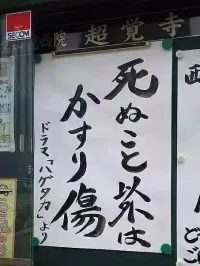 SECOM
西院 超覚寺
死ぬこと以外は
かすり傷
ドラマ「ハゲタカ」より